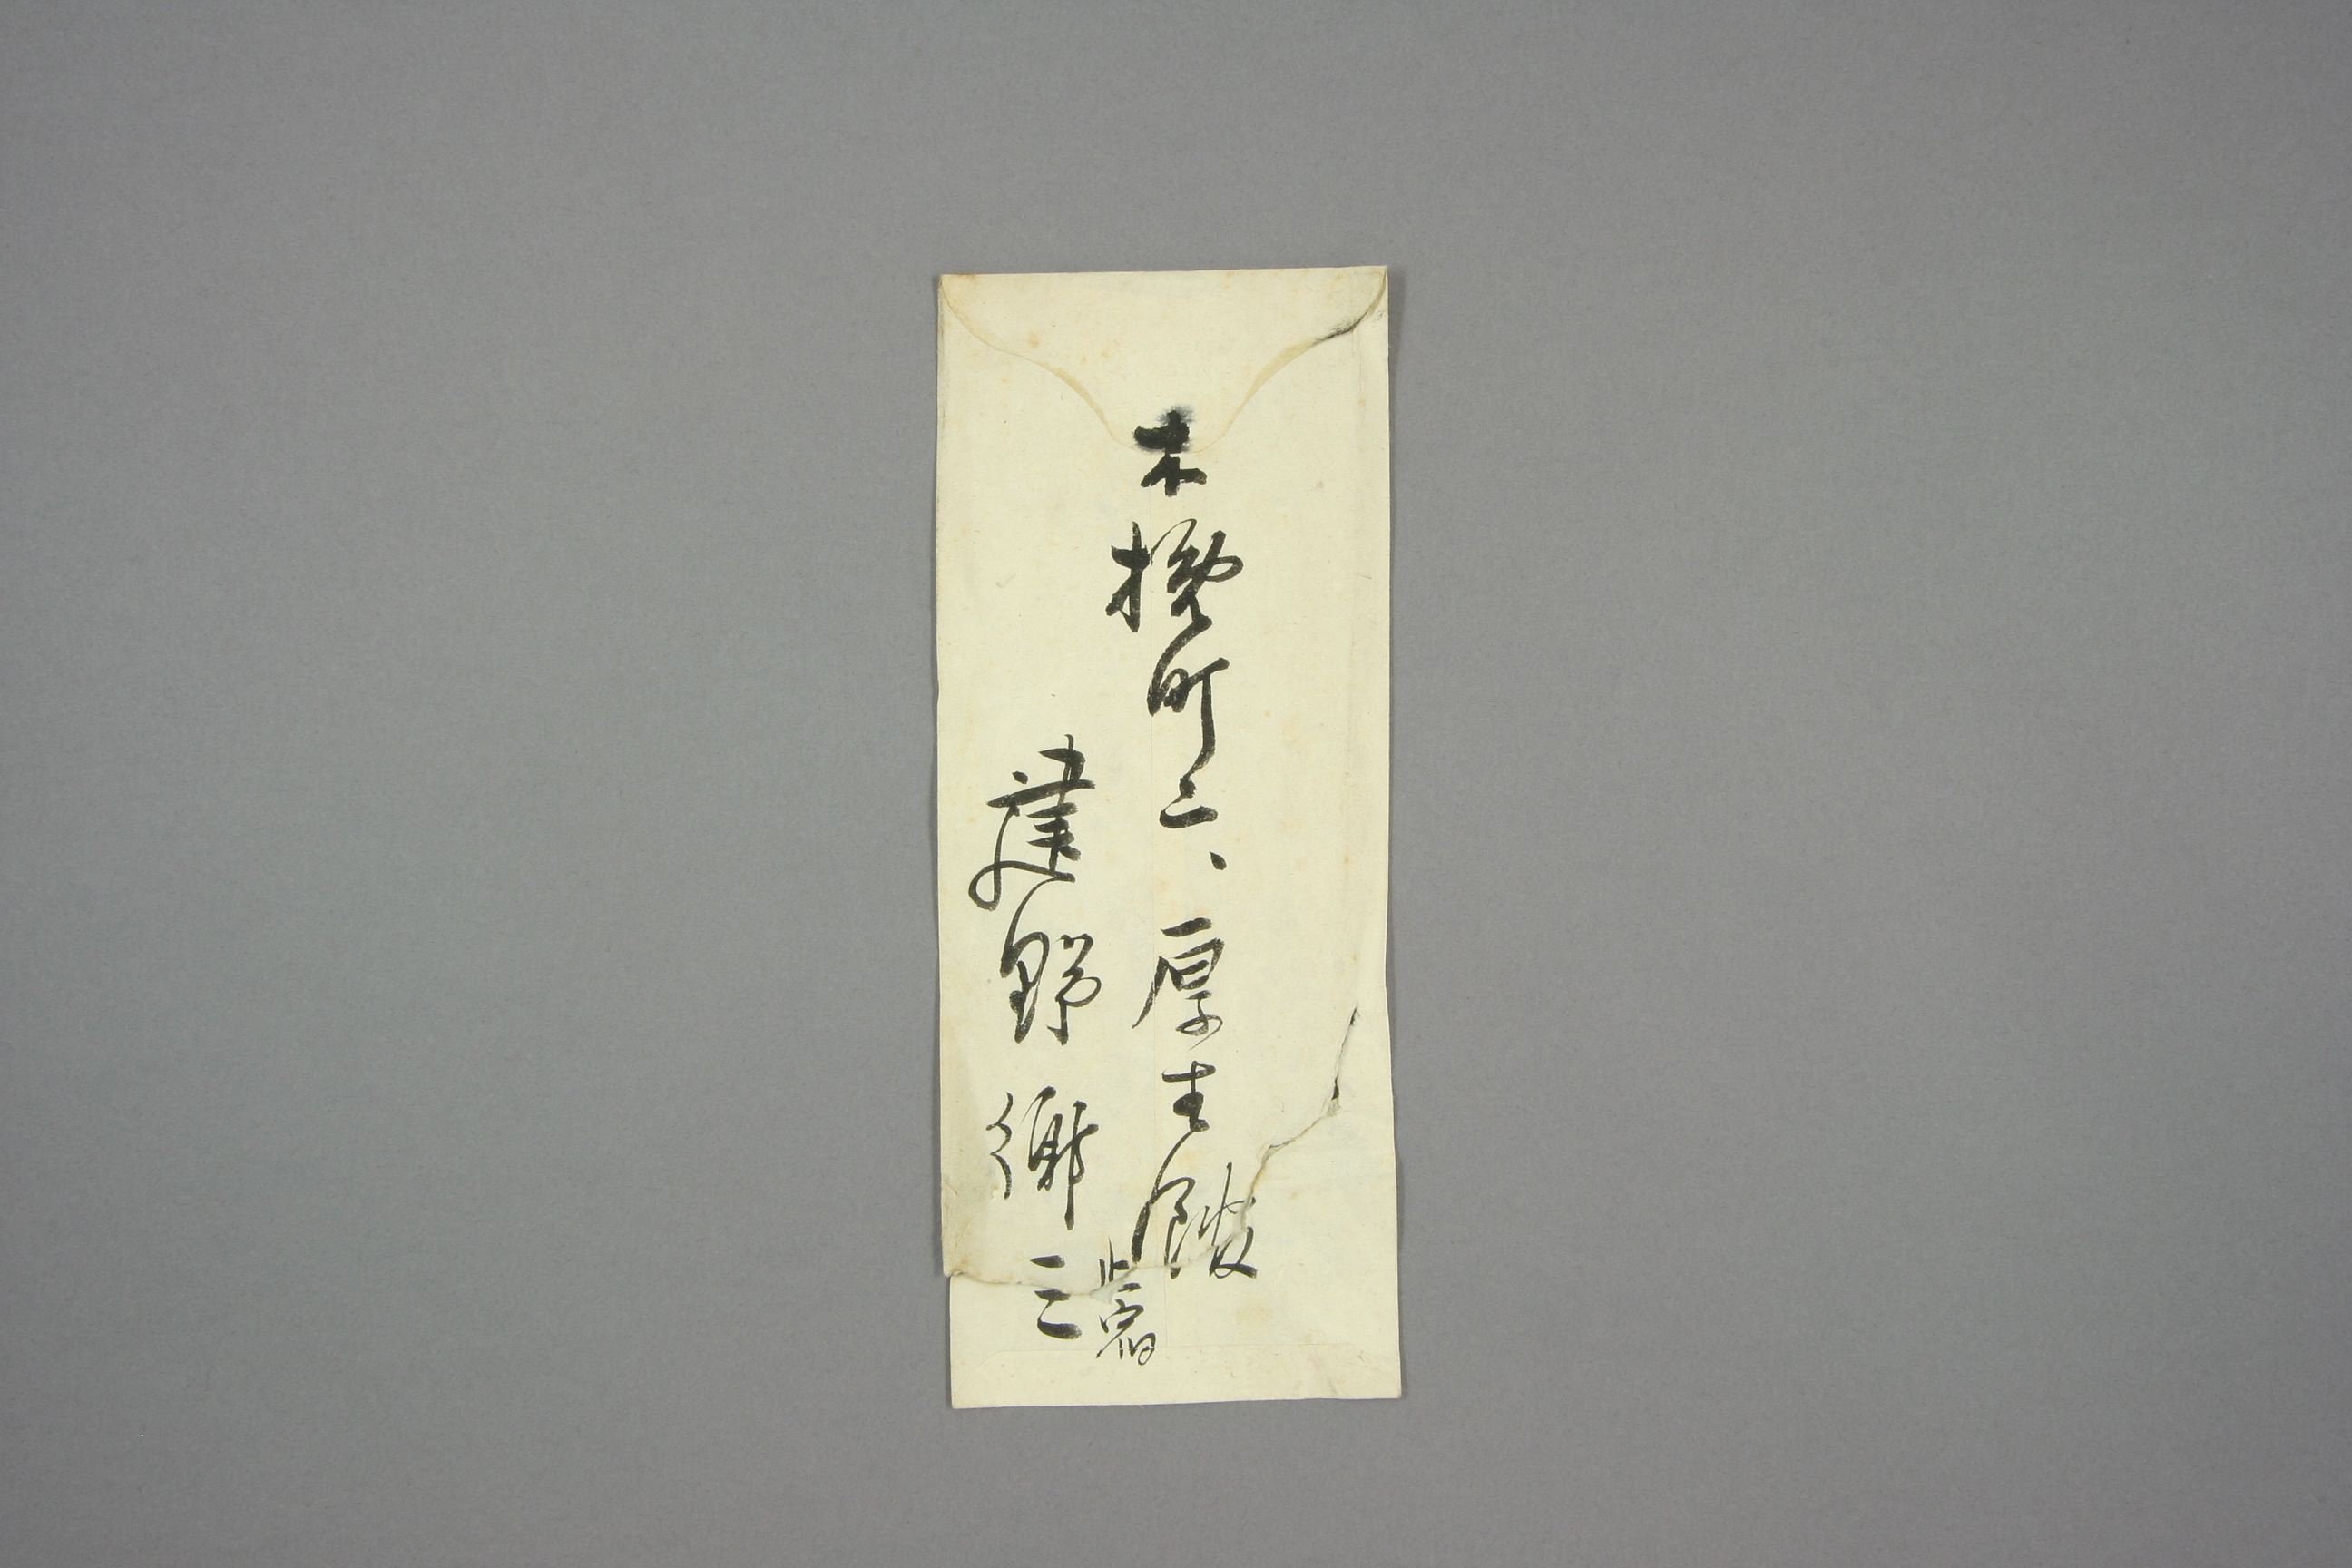 木挽町二、厚生館
止宿
建野郷三